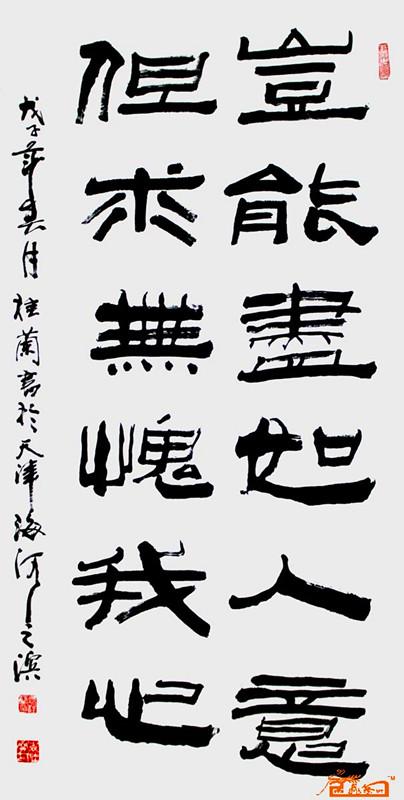 豈能盡如人意
但求無愧我心
戊子年春月桂蘭書於天津海河之濱